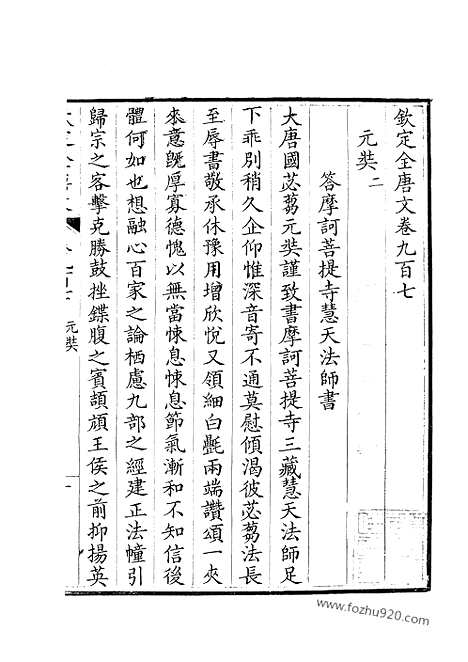 欽定全唐文卷九百七
元奘二
答摩訶菩提寺慧天法師書
大唐國苾蒭元奘謹致書摩訶菩提寺三藏慧天法師足
下乖別稍久企仰惟深音寄不通莫慰傾渴彼苾蒭法長
至辱書敬承休豫用增欣悅又領細白氎兩端讚頌一夾
來意旣厚寡德愧以無當悚息悚息節氣漸和不知信後
體何如也想融心百家之論栖慮九部之經建正法幢引
歸宗之客擊克勝鼓挫鍱腹之賓頡頏王侯之前抑揚英
元奘
www.fozhu920.com